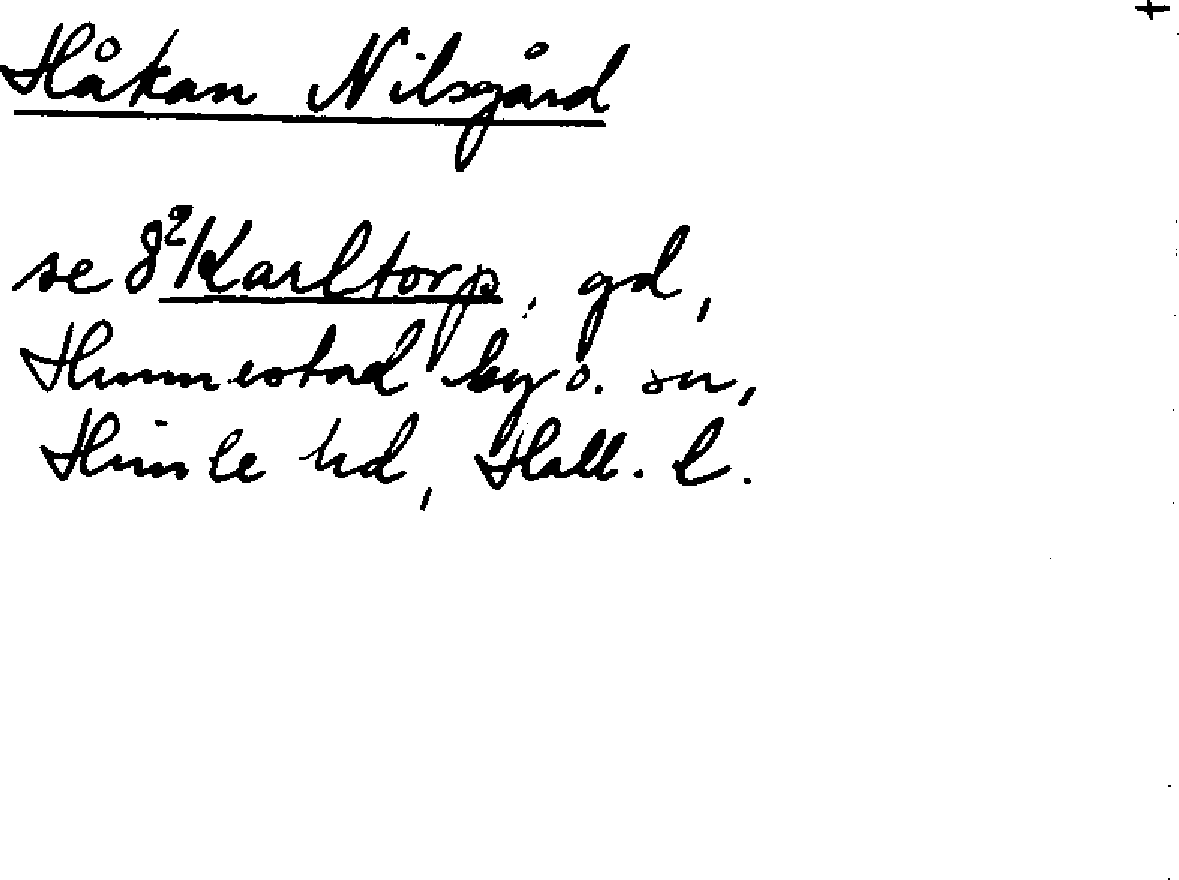 +
Håkan Nilsgård
se 8²Karltorp, gd,
Hunnestad by o. sn,
Himle hd, Hall. l.